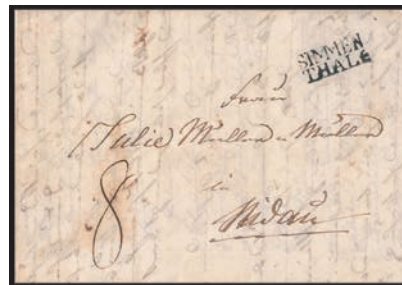 SIMMEN
THAL
Frau
Julie Müller u Müller
in
Nidau
8